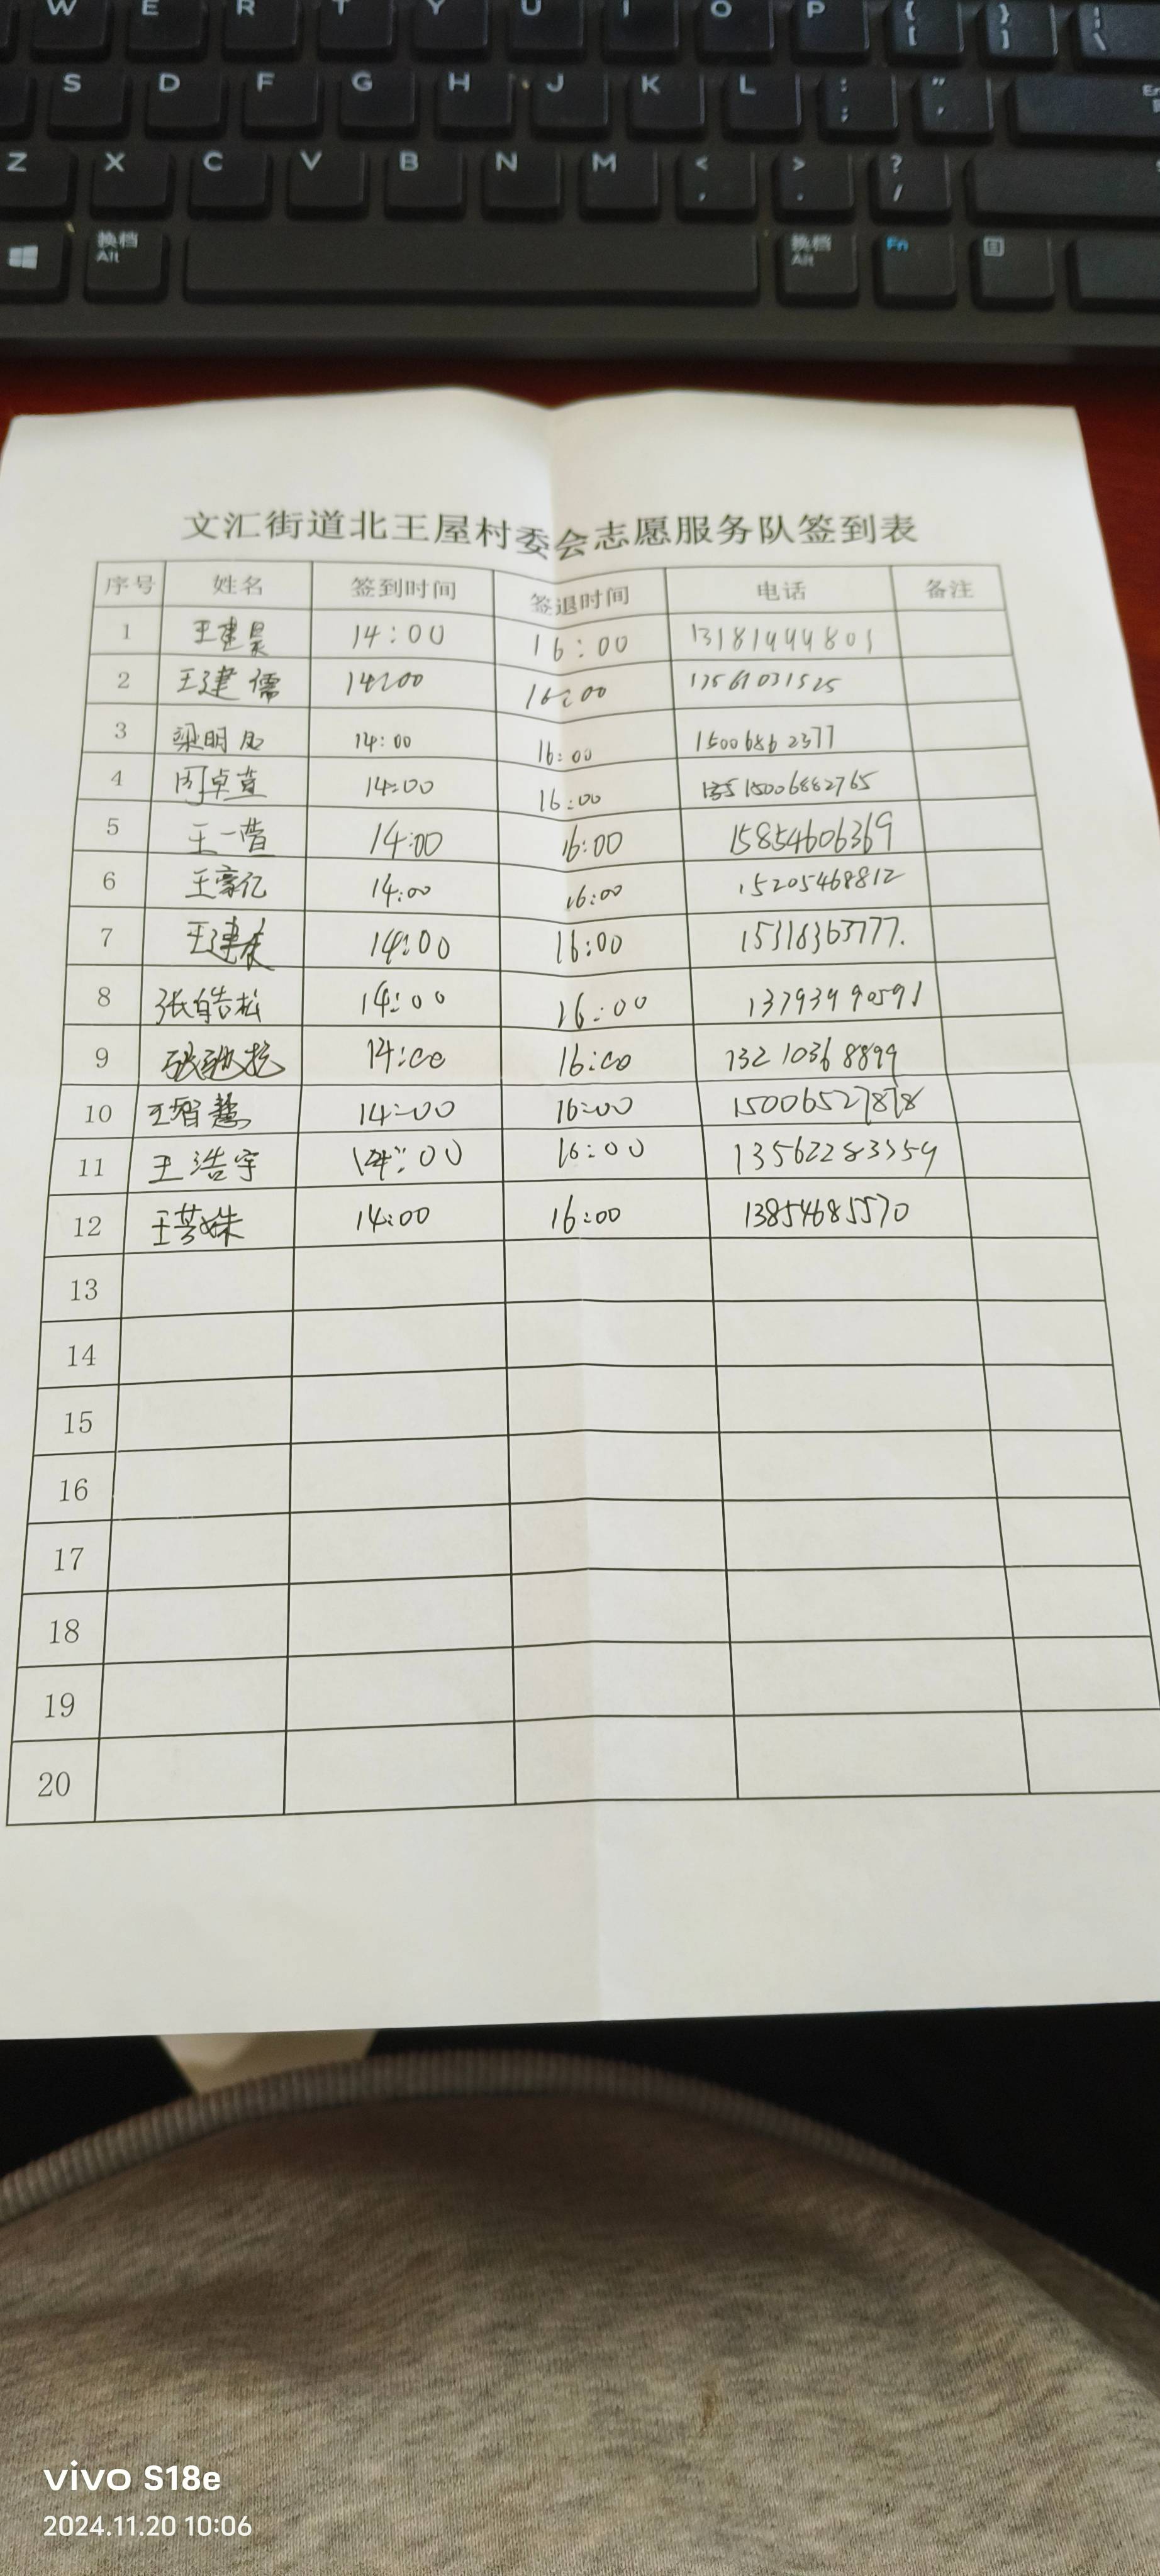 W E R T Y U I O P { [ } ] | \
S D F G H J K L : ; " ' En
Z X C V B N M < , > . ? /
换档 Alt 换档 Alt Fn
文汇街道北王屋村委会志愿服务队签到表
序号 姓名 签到时间 签退时间 电话 备注
1 王建昊 14:00 16:00 13181944801
2 王建儒 14:00 16:00
3 梁明月 14:00 16:00 15006862377
4 14:00 16:00 15006882765
5 王一营 14:00 16:00 15854606369
6 王豪亿 14:00 16:00 15205468812
7 14:00 16:00
8 张皓松 14:00 16:00 13793990591
9 14:00 16:00 13210368899
10 王智慧 14:00 16:00 15006527878
11 王浩宇 14:00 16:00 13562283359
12 王芸姝 14:00 16:00 13854685570
13
14
15
16
17
18
19
20
vivo S18e
2024.11.20 10:06